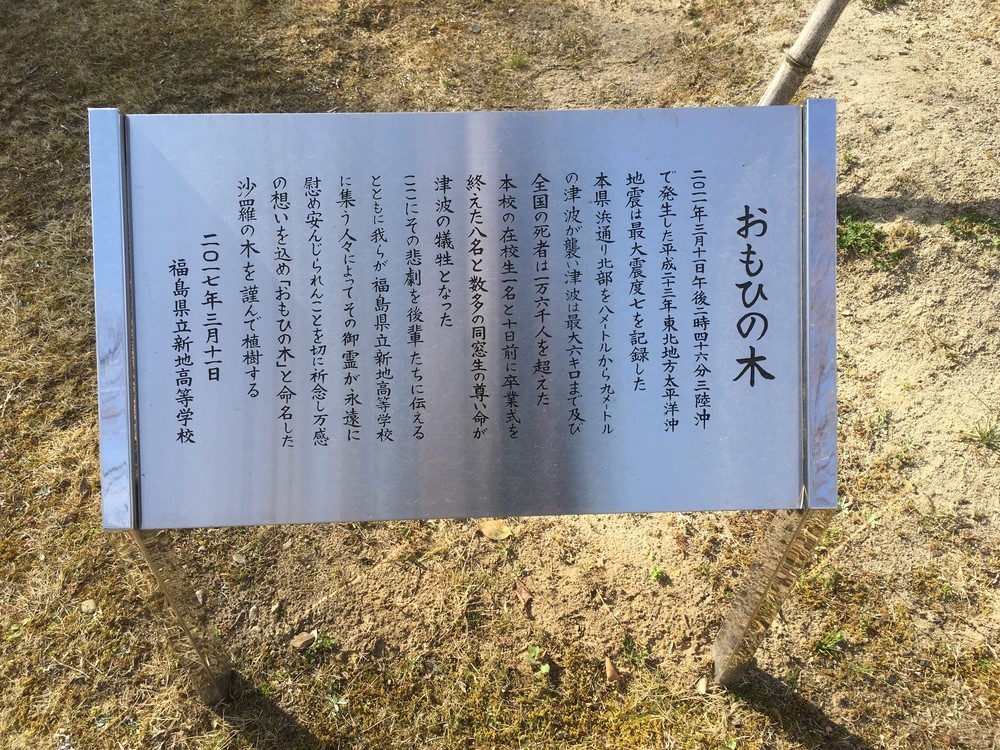 おもひの木
二〇一一年三月十一日午後二時四十六分三陸沖
で発生した平成二十三年東北地方太平洋沖
地震は最大震度七を記録した
本県浜通り北部を八メートルから九メートル
の津波が襲い津波は最大六キロまで及び
全国の死者は一万六千人を超えた
本校の在校生一名と十日前に卒業式を
終えた八名と数多の同窓生の尊い命が
津波の犠牲となった
ここにその悲劇を後輩たちに伝える
とともに我らが福島県立新地高等学校
に集う人々によってその御霊が永遠に
慰め安んじられんことを切に祈念し万感
の想いを込め「おもひの木」と命名した
沙羅の木を謹んで植樹する
二〇一七年三月十一日
福島県立新地高等学校